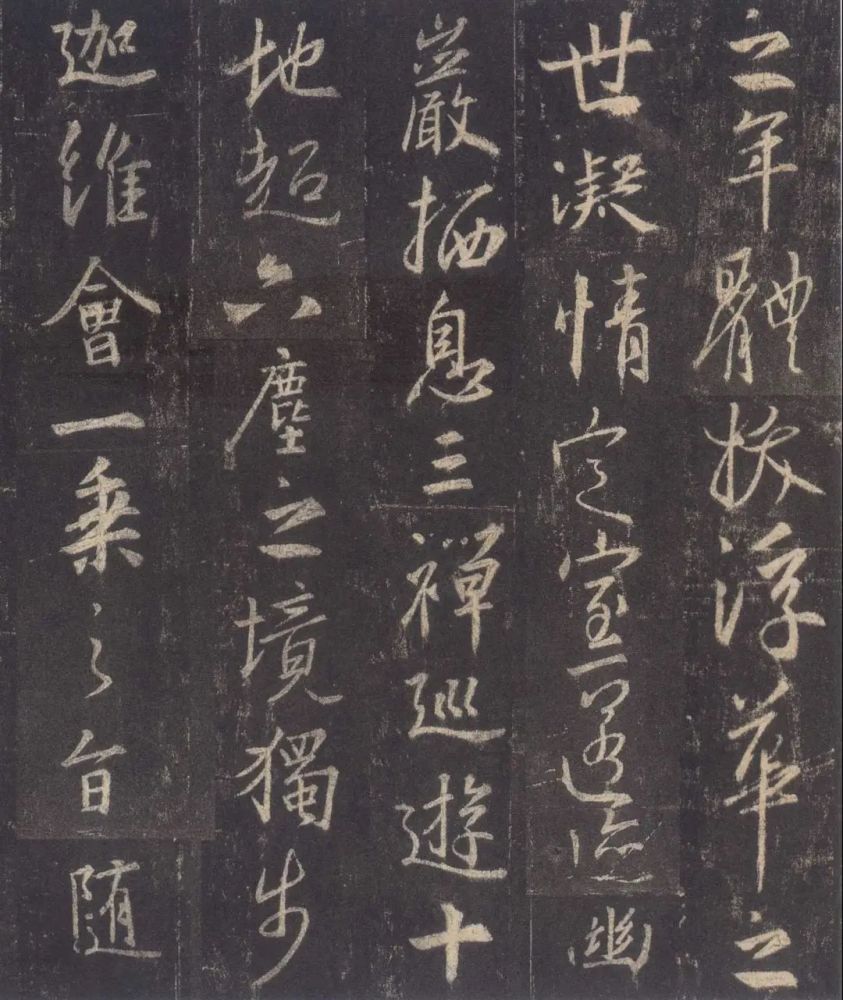 之年體拔浮華之
世凝情定室匿迹幽
巖栖息三禪巡遊十
地超六塵之境獨步
迦維會一乗之旨随